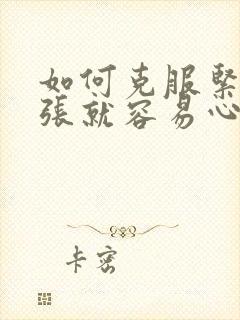 如何克服緊
張就容易心
卡密